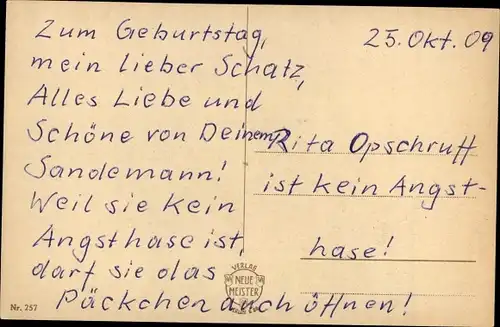 Zum Geburtstag,
mein lieber Schatz,
Alles Liebe und
Schöne von Deinem
Sandemann!
Weil sie kein
Angsthase ist,
darf sie das
Päckchen auch öffnen!
25. Okt. 09
Rita Opschruff
ist kein Angst-
hase!
VERLAG
NEUE
MEISTER
Nr. 257